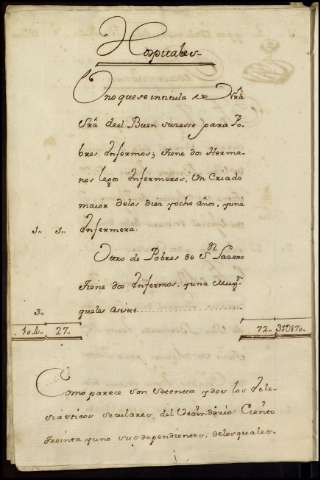 Hospitales
Uno que se intitula de Ntrã
Srã del Buen Sucesso para Po-
bres Infermos; tiene dos Herma-
nos legos Infermeros, Un Criado
maior de los diez y ocho años, y una
1. 1. Infermera.
Otro de Pobres de Sn. Lazaro
tiene dos Infermos, y una Mug.r
3. que les asiste.
27. 72.
Como parece son setenta y dos los Ecle-
siasticos seculares, del
treinta y uno sus dependientes, de los quales